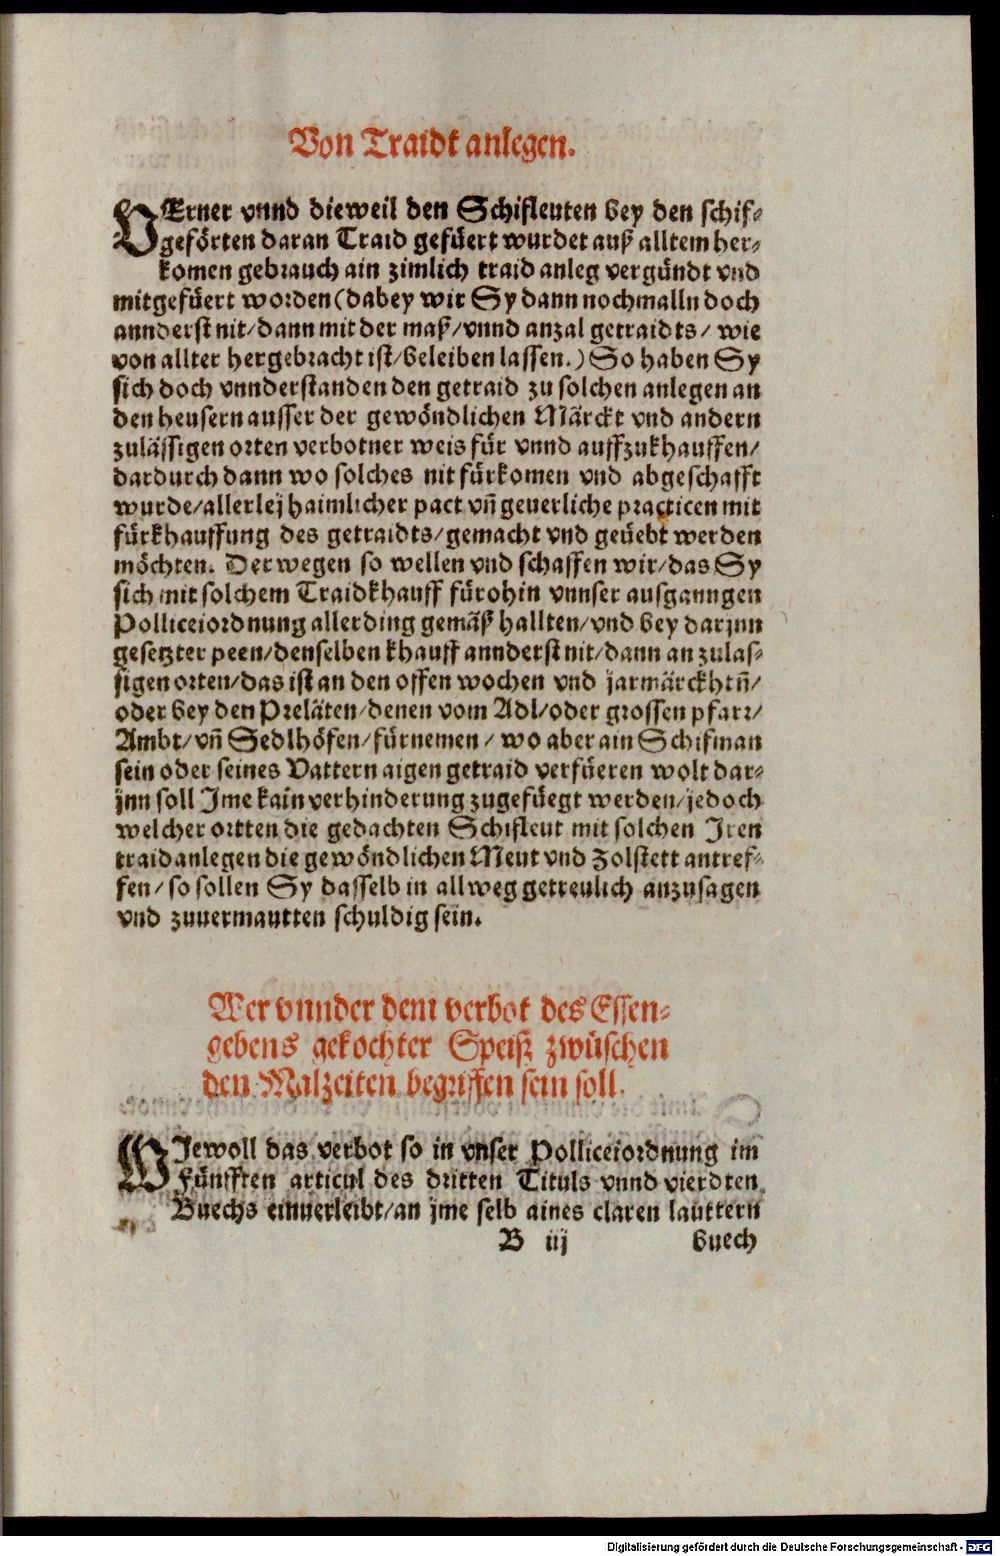 Von Traidt anlegen.
VErner vnnd dieweil den Schifleuten bey den schif⸗
geförten daran Traid gefüert wurdet auß alltem her⸗
komen gebrauch ain zimlich traid anleg vergündt vnd
mitgefüert worden (dabey wir Sy dann nochmalln doch
annderst nit/ dann mit der maß/ vnnd anzal getraidts/ wie
von allter hergebracht ist/ beleiben lassen.) So haben Sy
sich doch vnnderstanden den getraid zu solchen anlegen an
den heusern ausser der gewöndlichen Märckt vnd andern
zulässigen orten verbotner weis für vnnd auffzukhauffen/
dardurch dann wo solches nit fürkomen vnd abgeschafft
wurde/ allerlej haimlicher pact vn̄ geuerliche practicen mit
fürkhauffung des getraidts/ gemacht vnd geüebt werden
möchten. Der wegen so wellen vnd schaffen wir/ das Sy
sich mit solchem Traidkhauff fürohin vnnser ausganngen
Polliceiordnung allerding gemäß hallten/ vnd bey darjnn
gesetzter peen/ denselben khauff annderst nit/ dann an zulas⸗
sigen orten/ das ist an den offen wochen vnd jarmärckhtn̄/
oder bey den Preläten/ denen vom Adl/ oder grossen pfarr/
Ambt/ vn̄ Sedlhöfen/ fürnemen/ wo aber ain Schifman
sein oder seines Vattern aigen getraid verfüeren wolt dar⸗
jnn soll Jme kain verhinderung zugefüegt werden/ jedoch
welcher ortten die gedachten Schifleut mit solchen Jren
traidanlegen die gewöndlichen Meut vnd Zolstett antref⸗
fen/ so sollen Sy dasselb in allweg getreulich anzusagen
vnd zuuermautten schuldig sein.
Wer vnnder dem verbot des Essen⸗
gebens gekochter Speiß zwüschen
den Malzeiten begriffen sein soll.
WJewoll das verbot so in vnser Polliceiordnung im
Fünfften articul des dritten Tituls vnnd vierdten
Buechs einuerleibt/ an jme selb aines claren lauttern
B iij buech
Digitalisierung gefördert durch die Deutsche Forschungsgemeinschaft - DFG